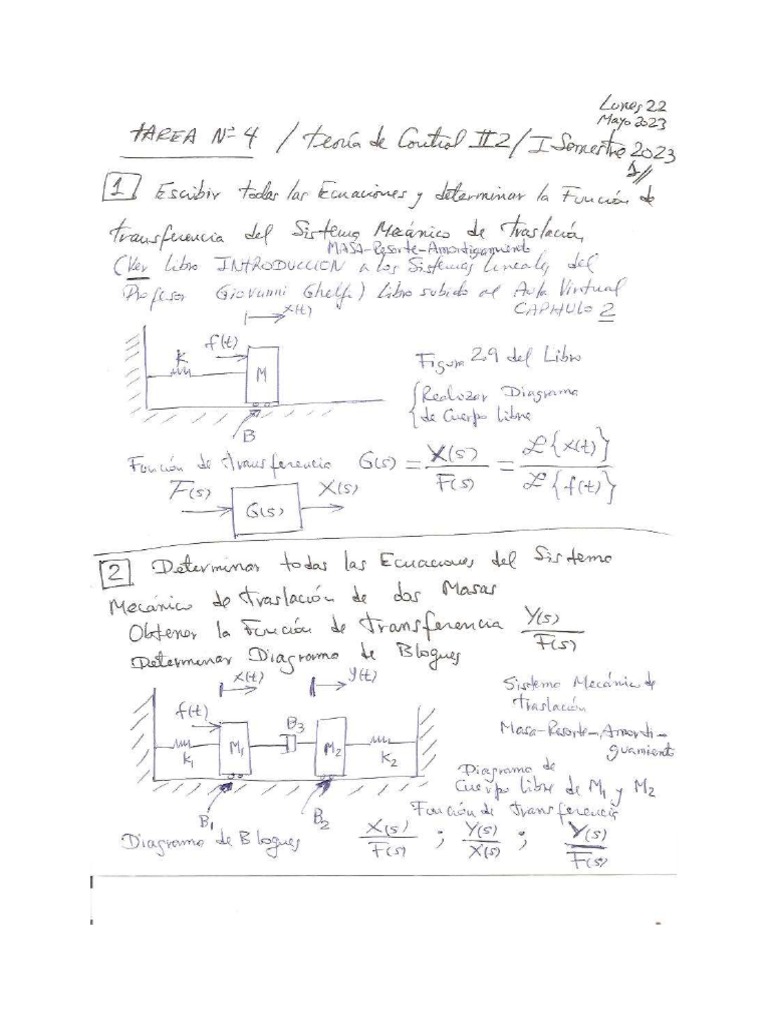 Lunes 22
Mayo 2023
TAREA Nº 4 / Teoría de Control II2 / I Semestre 2023
1//
1 Escribir todas las Ecuaciones y determinar la Función de
transferencia del Sistema Mecánico de Traslación
MASA-Resorte-Amortiguamiento
(Ver Libro INTRODUCCION a los Sistemas Lineales del
Profesor Giovanni Ghelfi) Libro subido al Aula Virtual
CAPITULO 2
x(t)
f(t)
K
M
B
Figura 2.9 del Libro
{Realizar Diagrama
de Cuerpo libre
Función de transferencia G(s) = X(s) / F(s) = ℒ{x(t)} / ℒ{f(t)}
F(s) G(s) X(s)
2 Determinar todas las Ecuaciones del Sistema
Mecánico de traslación de dos Masas
Obtener la Función de transferencia Y(s) / F(s)
Determinar Diagrama de Bloques
x(t) y(t)
f(t)
K1 M1 B3 M2 K2
B1 B2
Sistema Mecánico de
traslación
Masa-Resorte-Amorti-
guamiento
Diagrama de
Cuerpo libre de M1 y M2
Función de transferencia
Diagrama de Bloques X(s) / F(s) ; Y(s) / X(s) ; Y(s) / F(s)